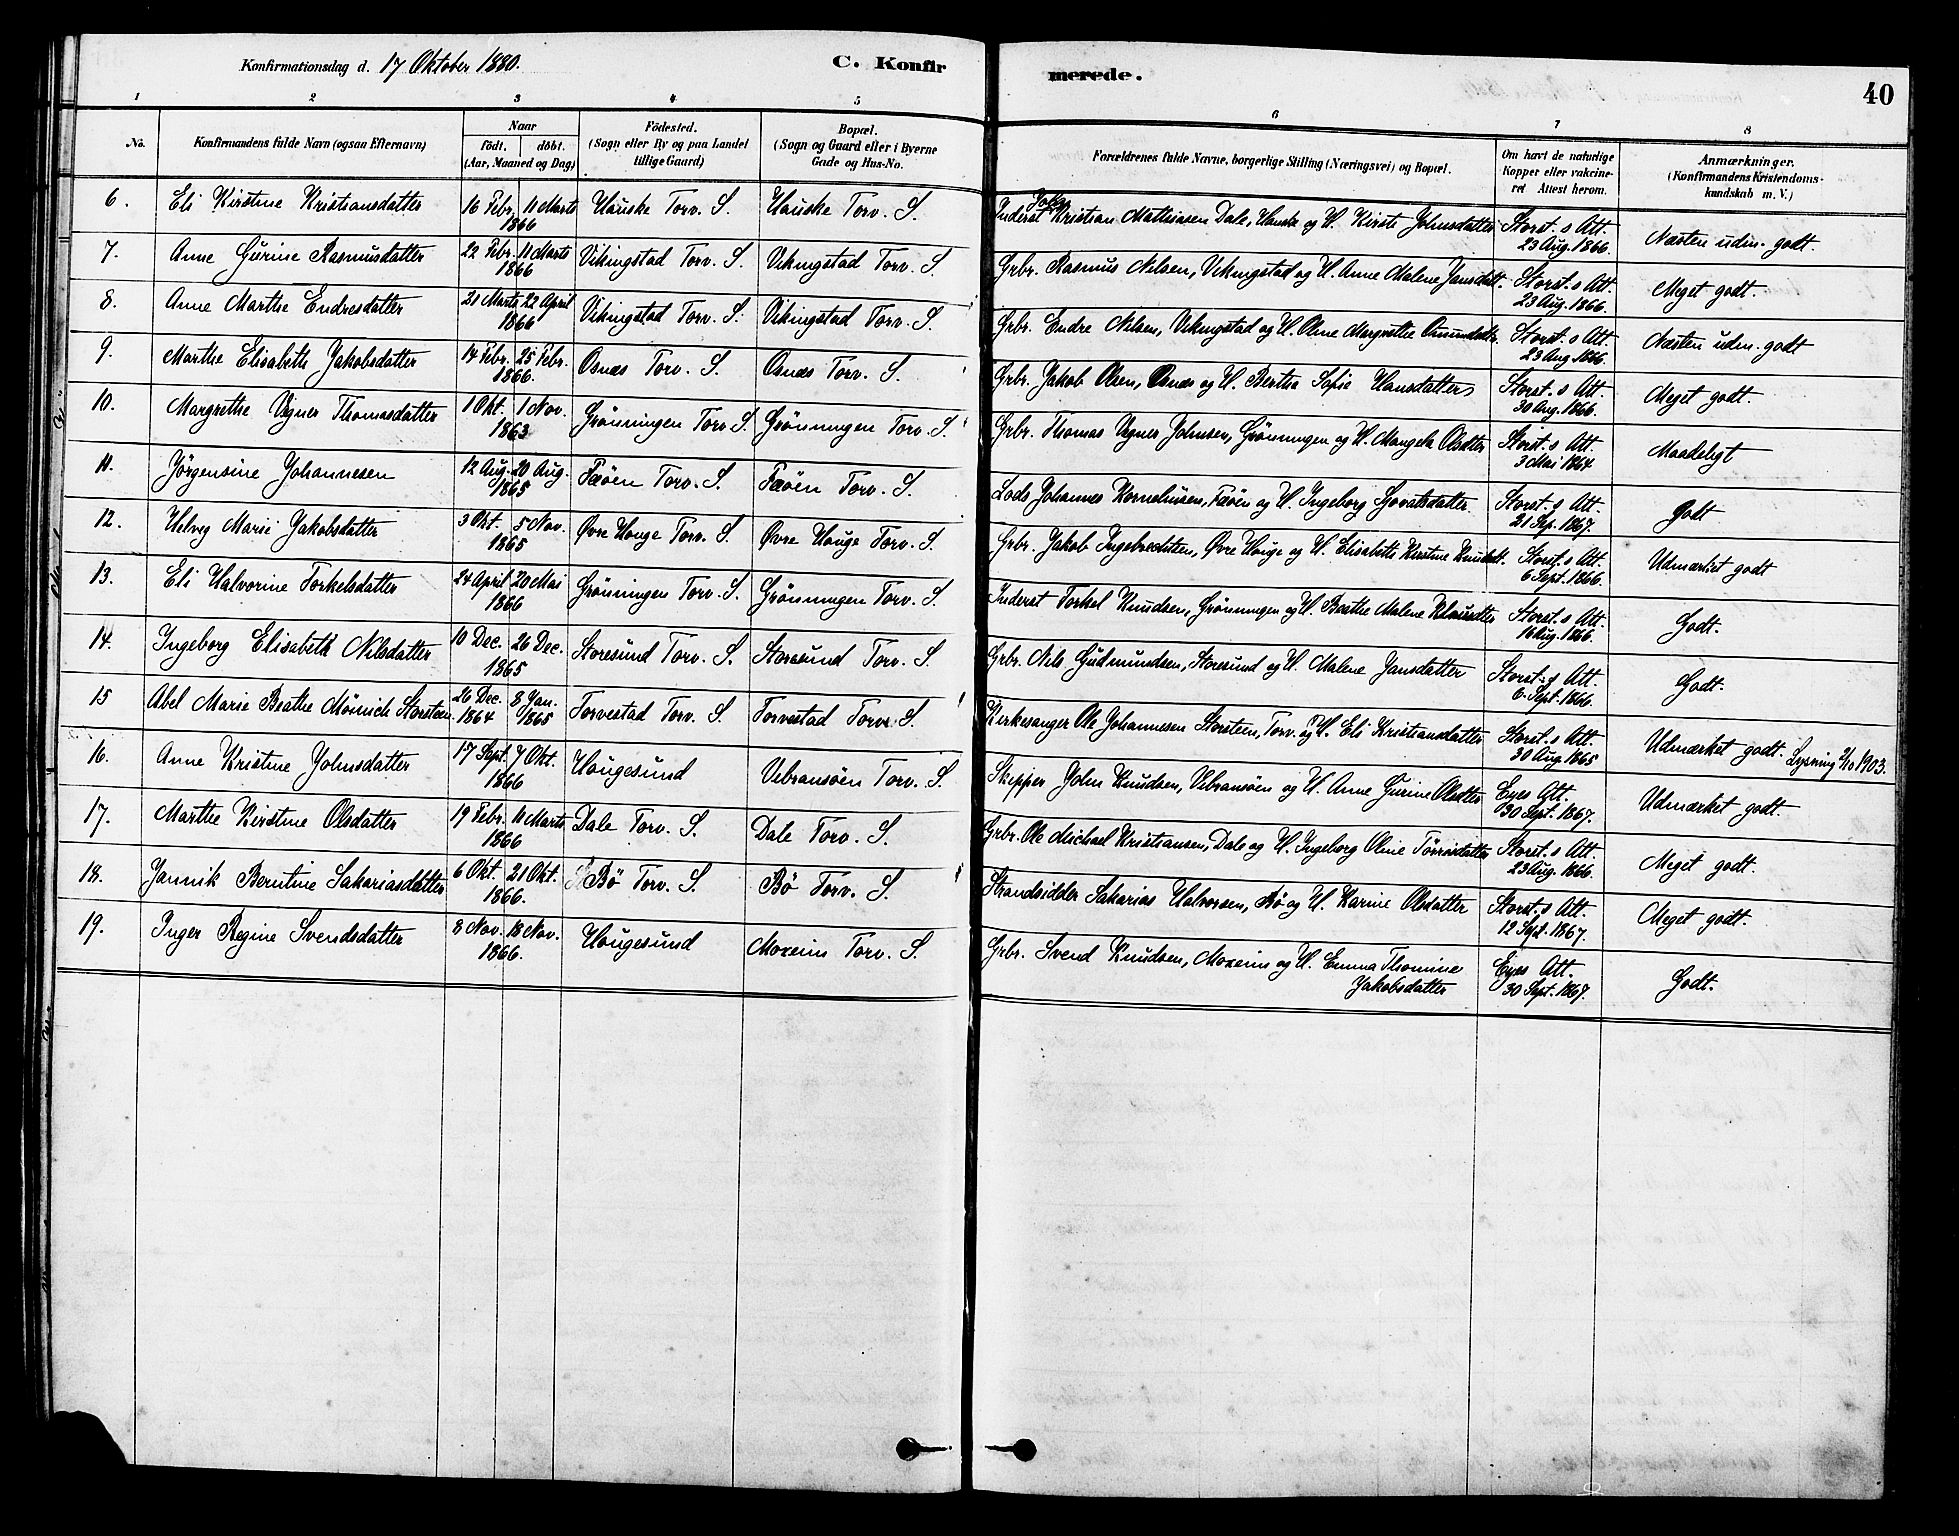 Konfirmationsdag d. 17 Oktober 1880. C. Konfir merede. 40
1 2 3 4 5 6 7 8
No. Konfirmandens fulde Navn (ogsaa Efternavn) Naar födt. döbt. (Aar, Maaned og Dag) Födested. (Sogn eller By og paa Landet tillige Gaard) Bopæl. (Sogn og Gaard eller i Byerne Gade og Hus-No. Forældrenes fulde Navne, borgerlige Stilling (Næringsvei) og Bopæl. Om havt de naturlige Kopper eller vakcineret Attest herom. Anmærkninger. (Konfirmandens Kristendomskundskab m. V.)
6. Eli Kirstine Kristiansdatter 16 Febr. 11 Marts 1866 Hauske Torv. S. Hauske Torv. S. Inderst John Kristian Mathiasen Dale, Hauske og H. Kirste Johnsdatter Storst.s Att. 23 Aug. 1866. Næsten udm. godt.
7. Anne Gurine Rasmusdatter 22 Febr. 11 Marts 1866 Vikingstad Torv. S. Vikingstad Torv. S. Grbr. Rasmus Nilsen, Vikingstad og H. Anne Malene Jansdatt. Storst.s Att. 23 Aug. 1866. Meget godt.
8. Anne Marthe Endresdatter 21 Marts 22 April 1866 Vikingstad Torv. S. Vikingstad Torv. S. Grbr. Endre Nilsen, Vikingstad og H. Oline Margrethe Omundsdtr. Storst.s Att. 23 Aug. 1866. Næsten udm. godt
9. Marthe Elisabeth Jakobsdatter 14 Febr. 25 Febr. 1866. Osnæs Torv. S. Osnæs Torv. S. Grbr. Jakob Olsen, Osnæs og H. Bertha Sofie Hansdatter Storst.s Att. 30 Aug. 1866. Meget godt.
10. Margrethe Vegner Thomasdatter 1 Okt. 1 Nov. 1863 Grönningen Torv. S. Grönningen Torv. S. Grbr. Thomas Vegner Johnsen, Grönningen og H. Mangela Olsdtter Storst.s Att. 3 Mai 1864 Maadeligt
11. Jörgensine Johannesen 12 Aug. 20 Aug. 1865 Fæöen Torv. S. Fæöen Torv. S. Lods Johannes Kornelius​en, Fæöen og H. Ingeborg Sjovatsdatter Storst.s Att. 21 Sep. 1867. Godt
12. Helvig Marie Jakobsdatter 3 Okt. 5 Nov. 1865 Øvre Houge Torv. S. Øvre Houge Torv. S. Grbr. Jakob Ingebrechtsen, Øvre Houge og H. Elisabeth Kirstine Knudsdt. Storst.s Att. 6 Sept. 1866. Udmærket godt
13. Eli Halvorine Torkelsdatter 24 April 20 Mai 1866 Grönningen Torv. S. Grönningen Torv. S. Inderst Torkel Knudsen, Grönningen og H. Berthe Malene Klausdtter Storst.s Att. 16 Aug. 1866. Godt.
14. Ingeborg Elisabeth Nilsdatter 10 Dec. 26 Dec. 1865 Storesund Torv. S. Storesund Torv. S. Grbr. Nils Gudmundsen, Storesund og H. Malene Jansdatter Storst.s Att. 6 Sept. 1866. Godt.
15 Abel Marie Beathe Mönnich Storsteen 26 Dec. 1864 8 Jan. 1865 Torvestad Torv. S. Torvestad Torv. S. Kirkesanger Ole Johannesen Storsteen, Torv. og H. Eli Kristiansdatter Storst.s Att. 30 Aug. 1865 Udmærket godt. Lysning 2/10 1903.
16. Anne Kristine Johnsdatter 17 Sept. 7 Okt. 1866 Hougesund Vibransöen Torv. S. Skipper John Knudsen, Vibransöen og H. Anne Gurine Olsdatter Eyes Att. 30 Sept. 1867. Udmærket godt.
17. Marthe Kirstine Olsdatter 19 Febr. 11 Marts 1866 Dale Torv. S. Dale Torv. S. Grbr. Ole Michael Kristiansen, Dale og H. Ingeborg Oline Törrisdatter Storst.s Att. 23 Aug. 1866. Meget godt.
18. Jannik Berntine Sakariasdatter 6 Okt. 21 Okt. 1866. Bö Torv. S. Bö Torv. S. Strandsidder Sakarias Halvorsen, Bö og H. Karine Olsdatter Storst.s Att. 12 Sept. 1867. Meget godt.
19. Inger Regine Svendsdatter 8 Nov. 18 Nov. 1866. Hougesund Moxeim Torv. S. Grbr. Svend Knudsen, Moxeim og H. Emma Thomine Jakobsdatter Eyes Att. 30 Sept. 1867. Godt.